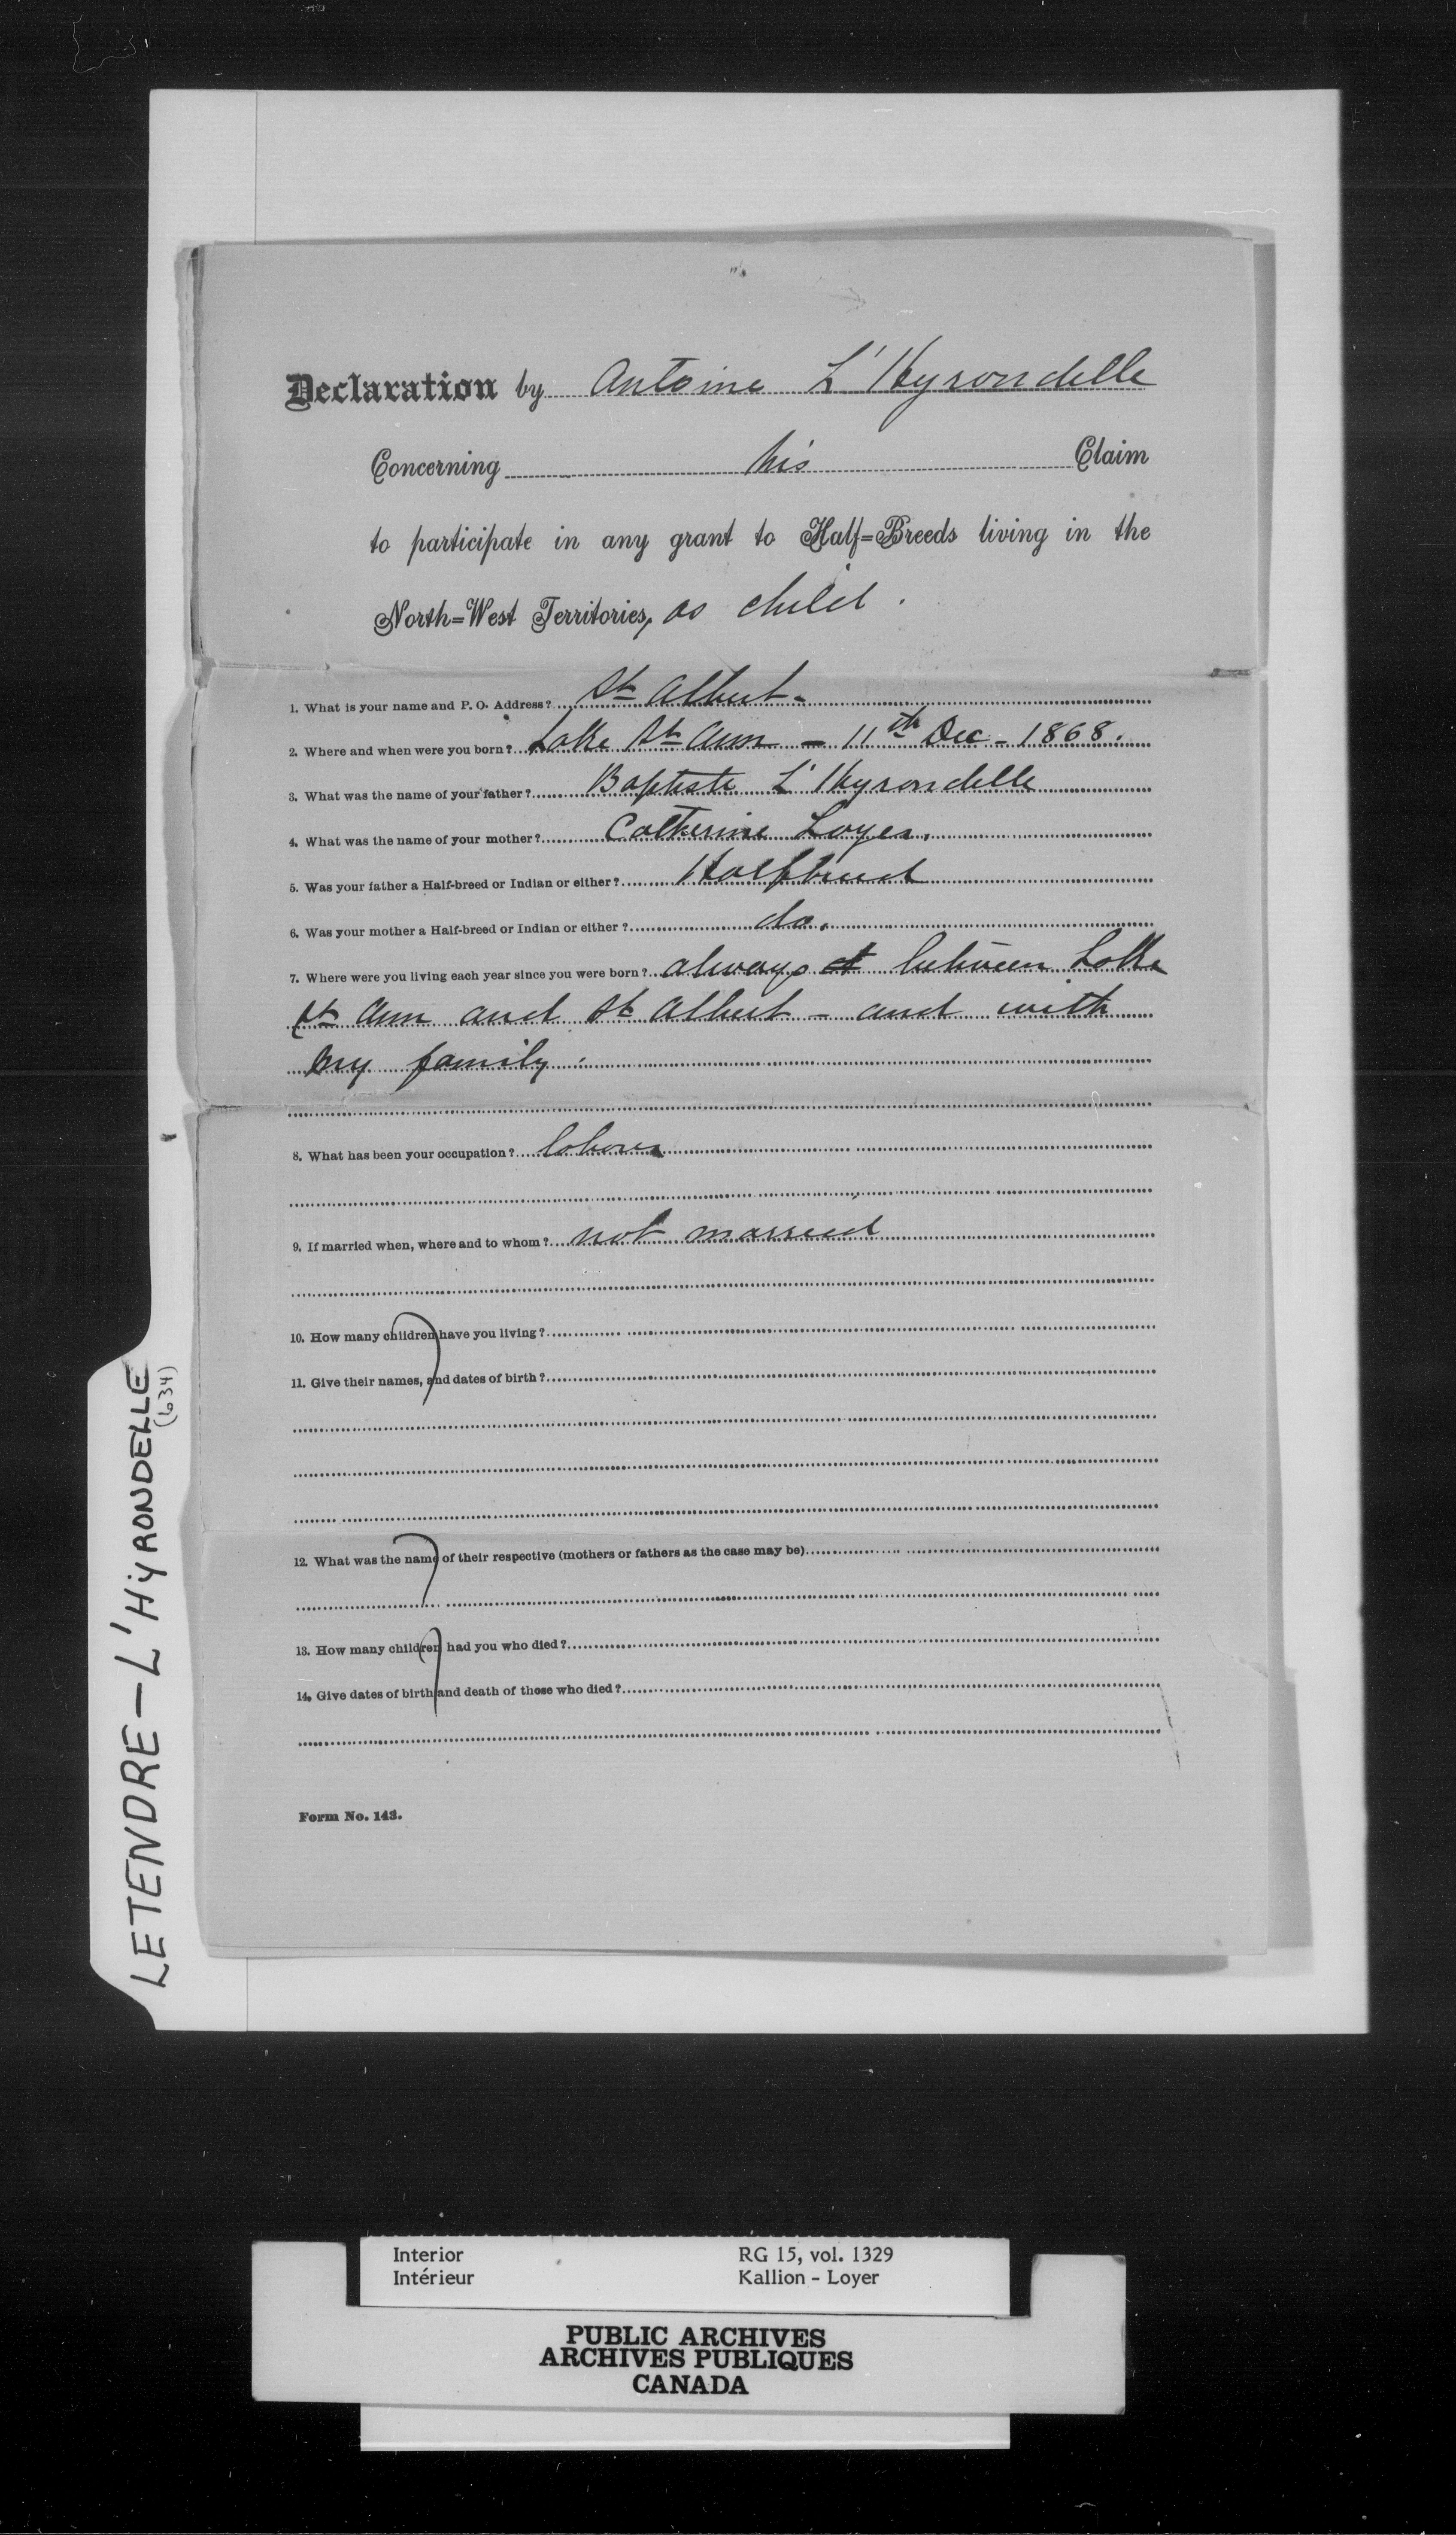 Declaration by Antoine L'Hyrondelle
Concerning his Claim
to participate in any grant to Half=Breeds living in the
North=West Territories, as child.
1. What is your name and P. O. Address? St Albert-
2. Where and when were you born? Lake St Ann - 11th Dec - 1868.
3. What was the name of your father? Baptiste L'Hyrondelle
4. What was the name of your mother? Catherine Loyer.
5. Was your father a Half-breed or Indian or either? Halfbreed
6. Was your mother a Half-breed or Indian or either? do.
7. Where were you living each year since you were born? always at between Lake
St Ann and St Albert - and with
my family.
8. What has been your occupation? laborer
9. If married when, where and to whom? not married
10. How many children have you living?
11. Give their names, and dates of birth?
12. What was the name of their respective (mothers or fathers as the case may be)
13. How many children had you who died?
14. Give dates of birth and death of those who died?
Form No. 143.
LETENDRE - L'HYRONDELLE
(634)
Interior RG 15, vol. 1329
Intérieur Kallion - Loyer
PUBLIC ARCHIVES
ARCHIVES PUBLIQUES
CANADA